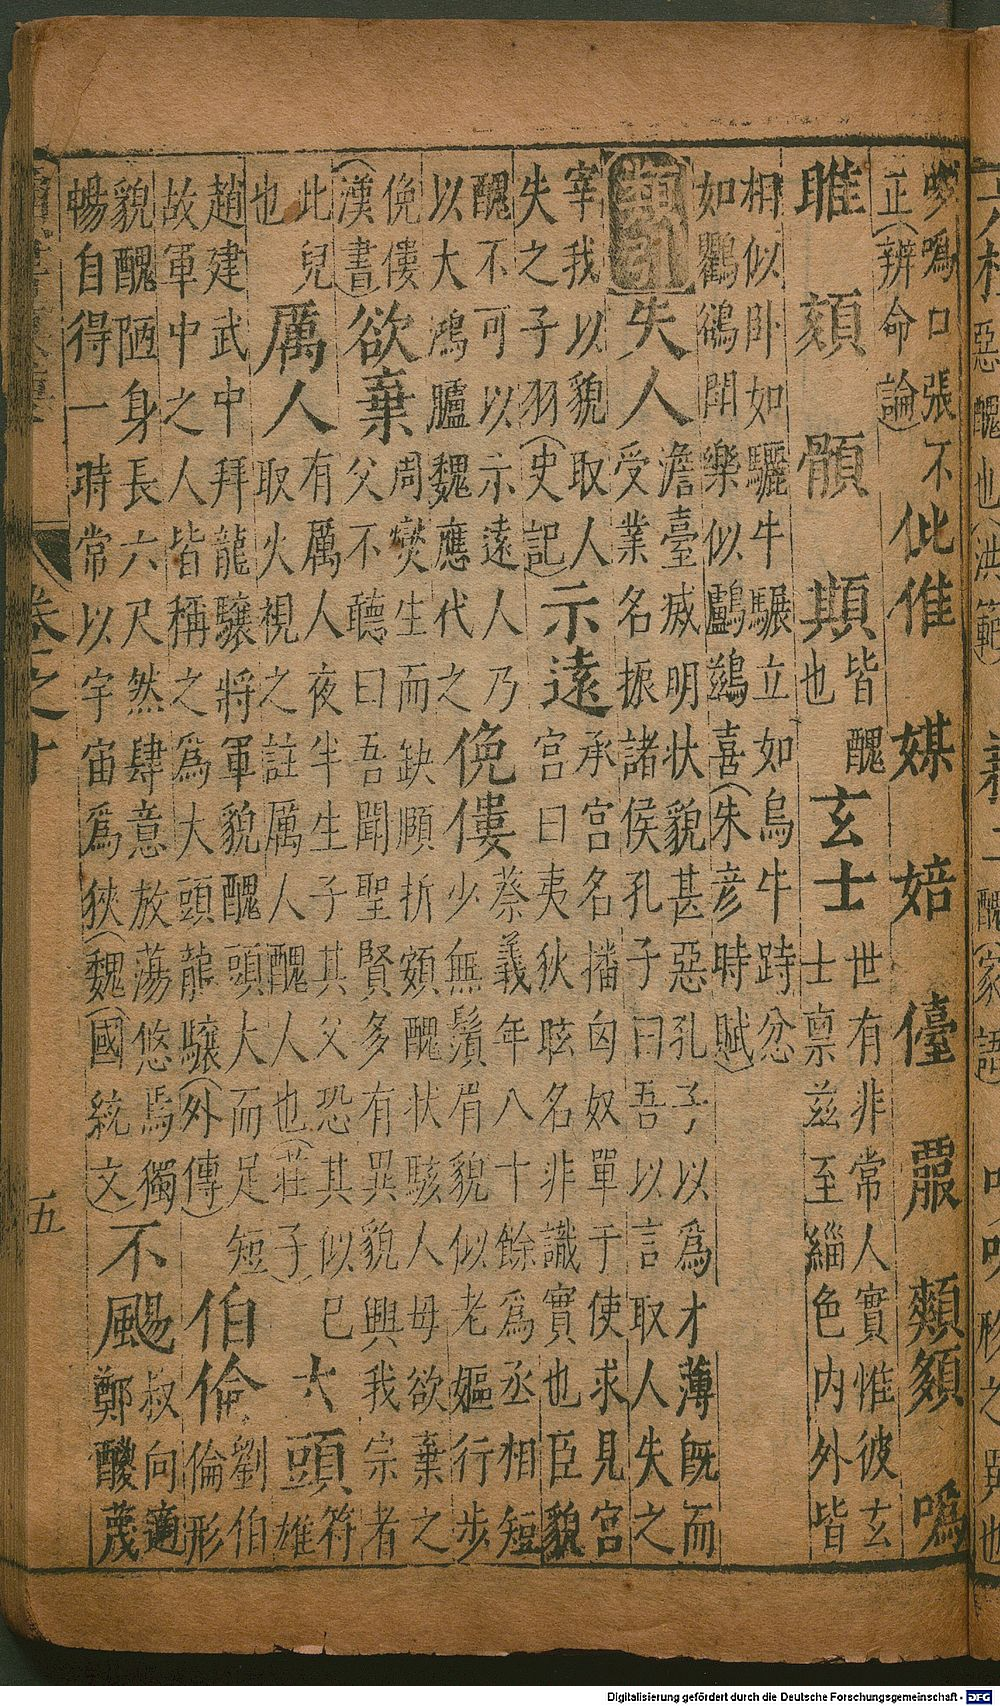 哆嗚口張不
正（辨命論）
仳倠　媒　㛐　儓　䫤　顤顟　嗚
睢　頦　䫏　䫥皆醜
也
玄士世有非常人實惟彼玄
士禀兹至緇色内外皆
相似卧如驪牛驏立如烏牛跱忿
如鸜鵒聞樂似鸕鷀喜（朱彦時賦）
類引
失人澹臺㓕明状貌甚惡孔子以為才薄既而
受業名振諸侯孔子曰吾以言取人失之
宰我以貌取人
失之子羽（史記）
示遠承宫名播匈奴單于使求見宫
宫曰夷狄眩名非識實也臣貌
醜不可以示遠人乃
以大鴻臚魏應代之
俛僂蔡義年八十餘為丞相短
少無鬚眉貌似老嫗行步
俛僂
（漢書）
欲棄周爕生而缺頥折頞醜状駭人毋欲棄之
父不聽曰吾聞聖賢多有異貌興我宗者
此兒
也
厲人有厲人夜半生子其父恐其似已
取火視之註厲人醜人也（莊子）
大頭符
雄
趙建武中拜龍驤將軍貌醜頭大而足短
故軍中之人皆稱之為大頭龍驤（外傳）
伯倫劉伯
倫形
貌醜陋身長六尺然肆意放蕩悠焉獨
暢自得一時常以宇宙為狹（魏國統文）
不颺叔向適
鄭醜蔑
卷之十
五